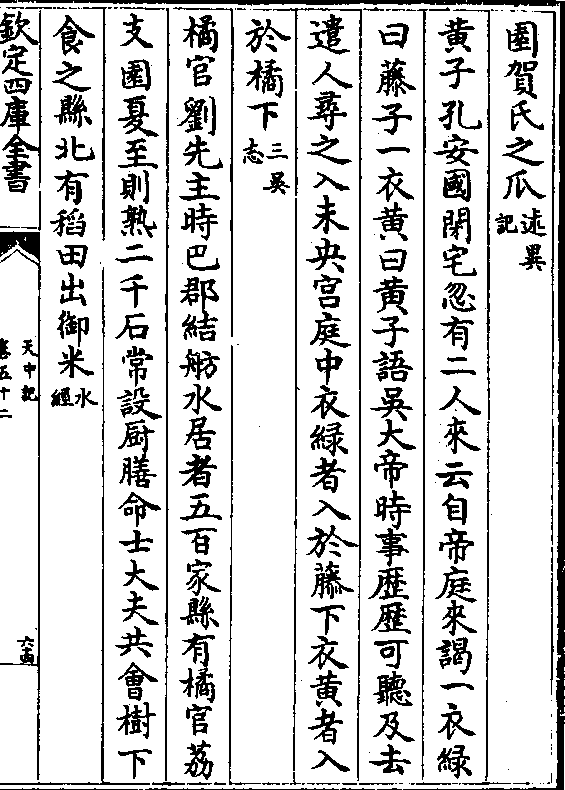 園賀氏之瓜述異記
黄子孔安國閉宅忽有二人來云自帝庭來謁一衣緑
曰藤子一衣黄曰黄子語吳大帝時事歴歴可聽及去
遣人尋之入未央宫庭中衣緑者入於藤下衣黄者入
於橘下三吳志
橘官劉先主時巴郡結舫水居者五百家縣有橘官荔
支園夏至則熟二千石常設厨膳命士大夫共會樹下
食之縣北有稻田出御米水經
欽定四庫全書
天中記
卷五十二
六十四